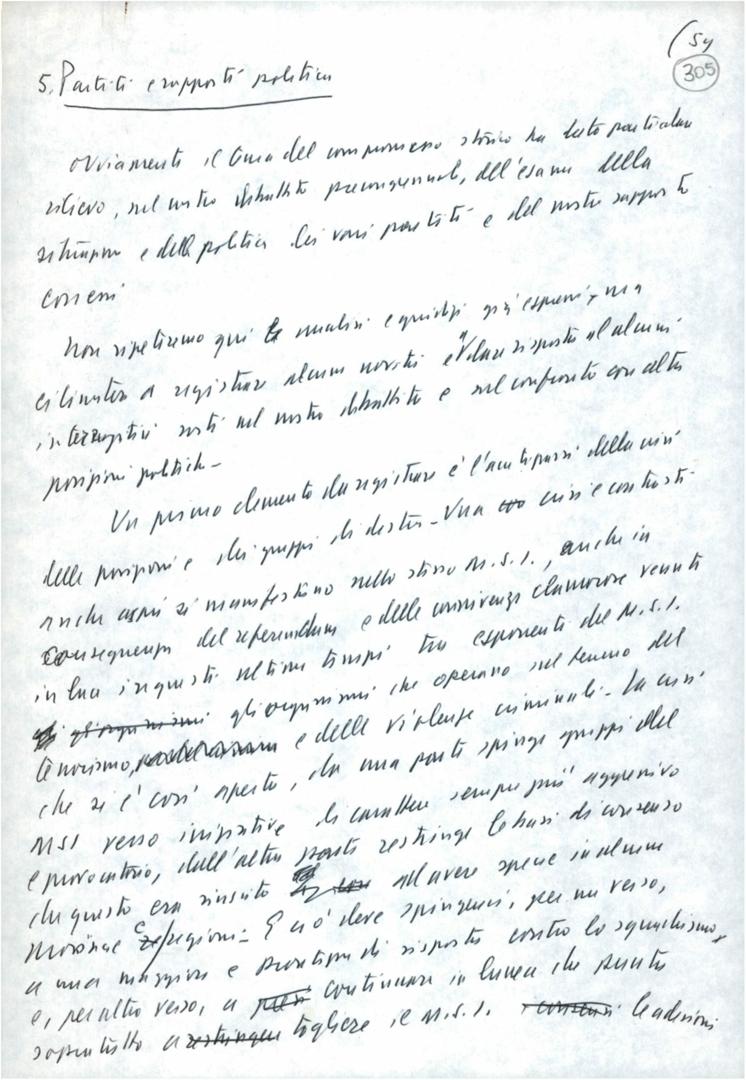 (54
305
5. Partiti e rapporti politici
Ovviamente il tema del compromesso storico ha dato particolare
rilievo, nel nostro dibattito precongressuale, all'esame della
situazione e della politica dei vari partiti e del nostro rapporto
con essi
Non ripeteremo qui le analisi e giudizi già espressi, ma
ci limiterò a registrare alcune novità e a dare risposta ad alcuni
interrogativi sorti nel nostro dibattito e nel confronto con altre
posizioni politiche -
Un primo elemento da registrare è l' della crisi
delle posizioni e dei gruppi di destra - Una crisi e contrasti
anche aspri si manifestano nello stesso M.S.I., anche in
conseguenza del referendum e delle connivenze clamorose venute
in luce in questi ultimi tempi tra esponenti del M.S.I.
gli organismi gli organismi che operano sul terreno del
terrorismo, e delle violenze criminali - La crisi
che si è così aperta, da una parte spinge gruppi del
MSI verso iniziative di carattere sempre più aggressivo
e provocatorio, dall'altra parte restringe le basi di consenso
che questo era riuscito ad avere specie in alcune
zone e regioni - E ciò deve spingerci, per un verso,
a una maggiore e prontezza di risposta contro lo squadrismo,
e, per altro verso, a continuare in linea che punta
soprattutto a restringere togliere il M.S.I. i consensi le adesioni